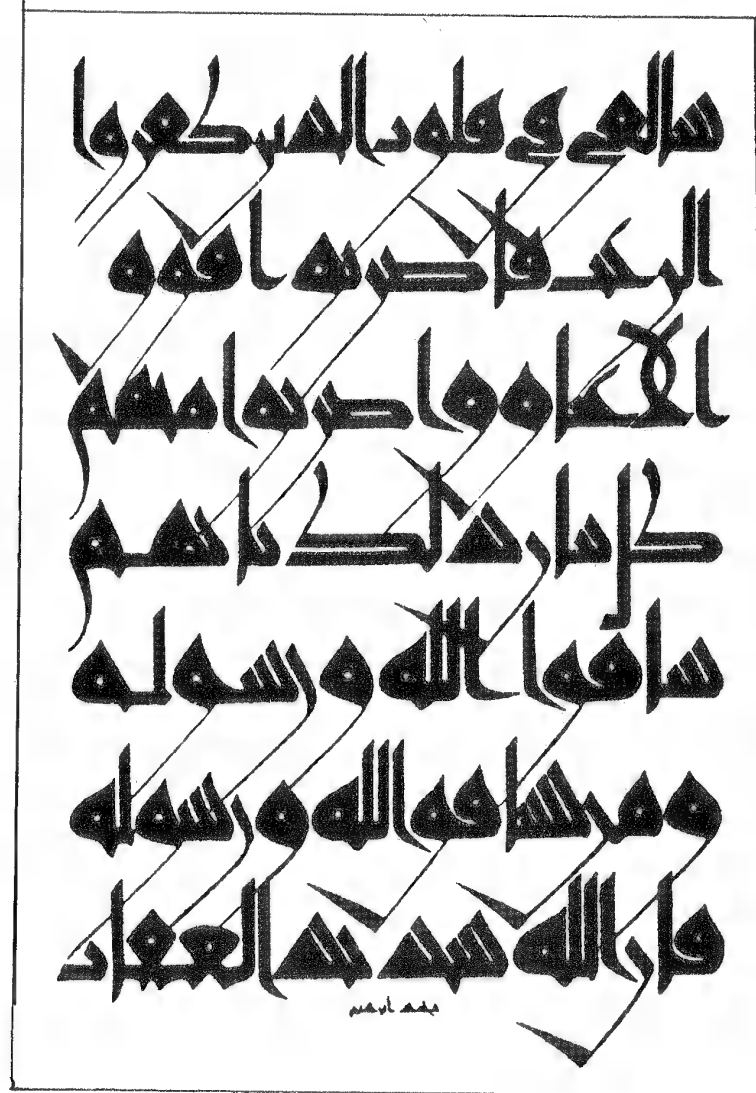 سالقى فى قلوب الذين كفروا
الرعب فاضربوا فوق
الاعناق واضربوا منهم
كل بنان ذلك بانهم
شاقوا الله ورسوله
ومن يشاقق الله ورسوله
فان الله شديد العقاب